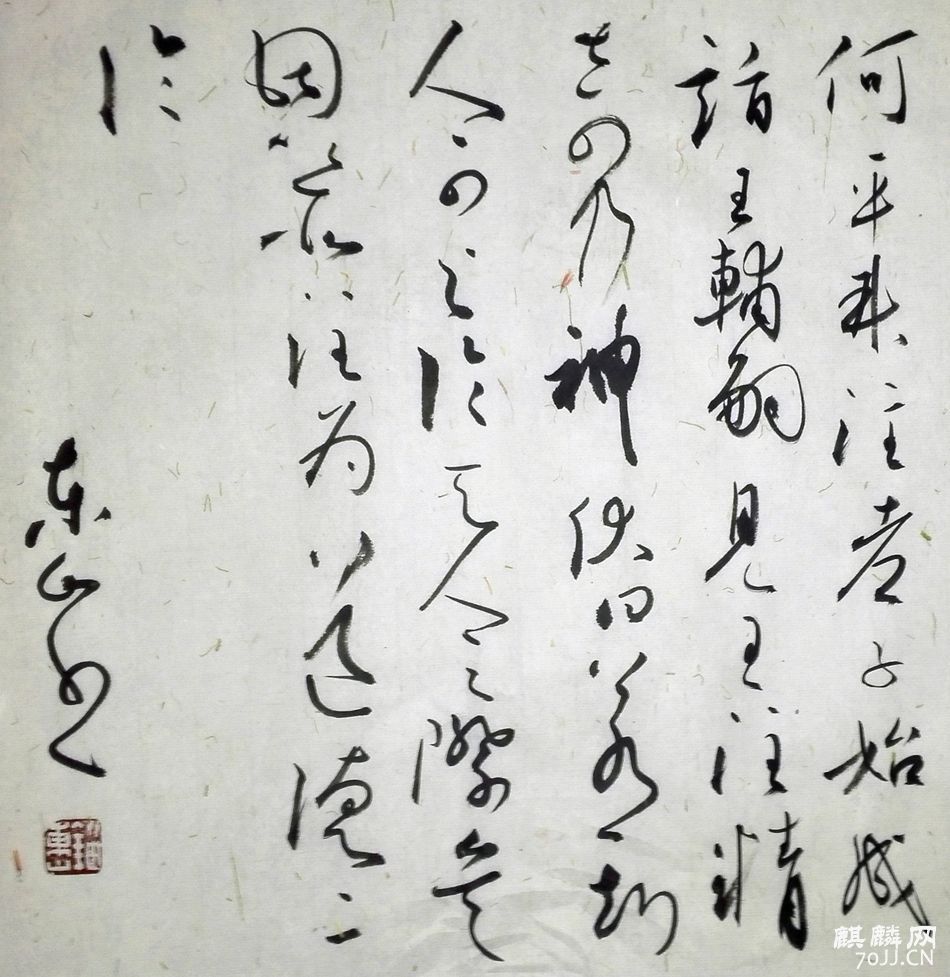 何平叔注老子始成
詣王輔嗣見王注精
奇乃神伏曰若斯
人可與論天人之際矣
因以所注為道德二
論
东山书
麒麟网
70JJ.CN